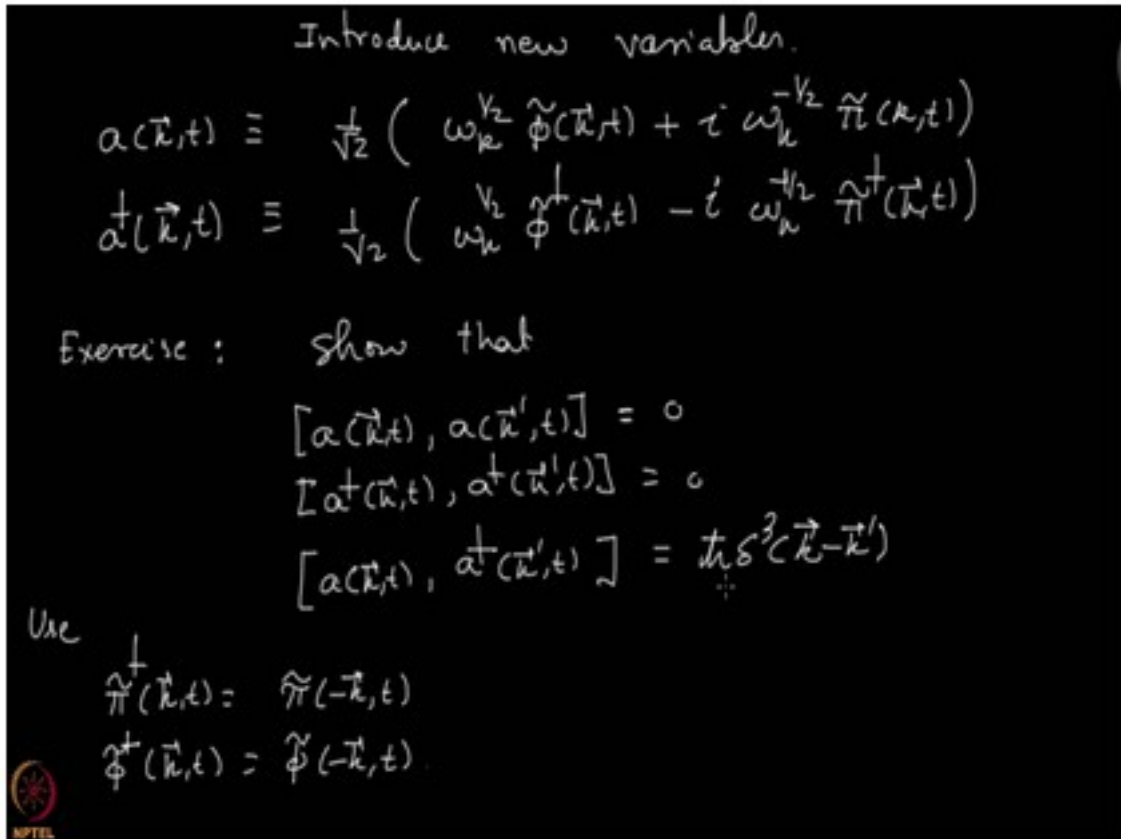 Introduce new variables.
a(k⃗,t) ≡ 1/√2 ( ω_k^{1/2} φ̃(k⃗,t) + i ω_k^{-1/2} π̃(k,t) )
a†(k⃗,t) ≡ 1/√2 ( ω_k^{1/2} φ̃†(k⃗,t) - i ω_k^{-1/2} π̃†(k⃗,t) )
Exercise : Show that
[a(k⃗,t), a(k⃗',t)] = 0
[a†(k⃗,t), a†(k⃗',t)] = 0
[a(k⃗,t), a†(k⃗',t)] = ħδ³(k⃗-k⃗')
Use
π̃†(k⃗,t) = π̃(-k⃗,t)
φ̃†(k⃗,t) = φ̃(-k⃗,t).
NPTEL